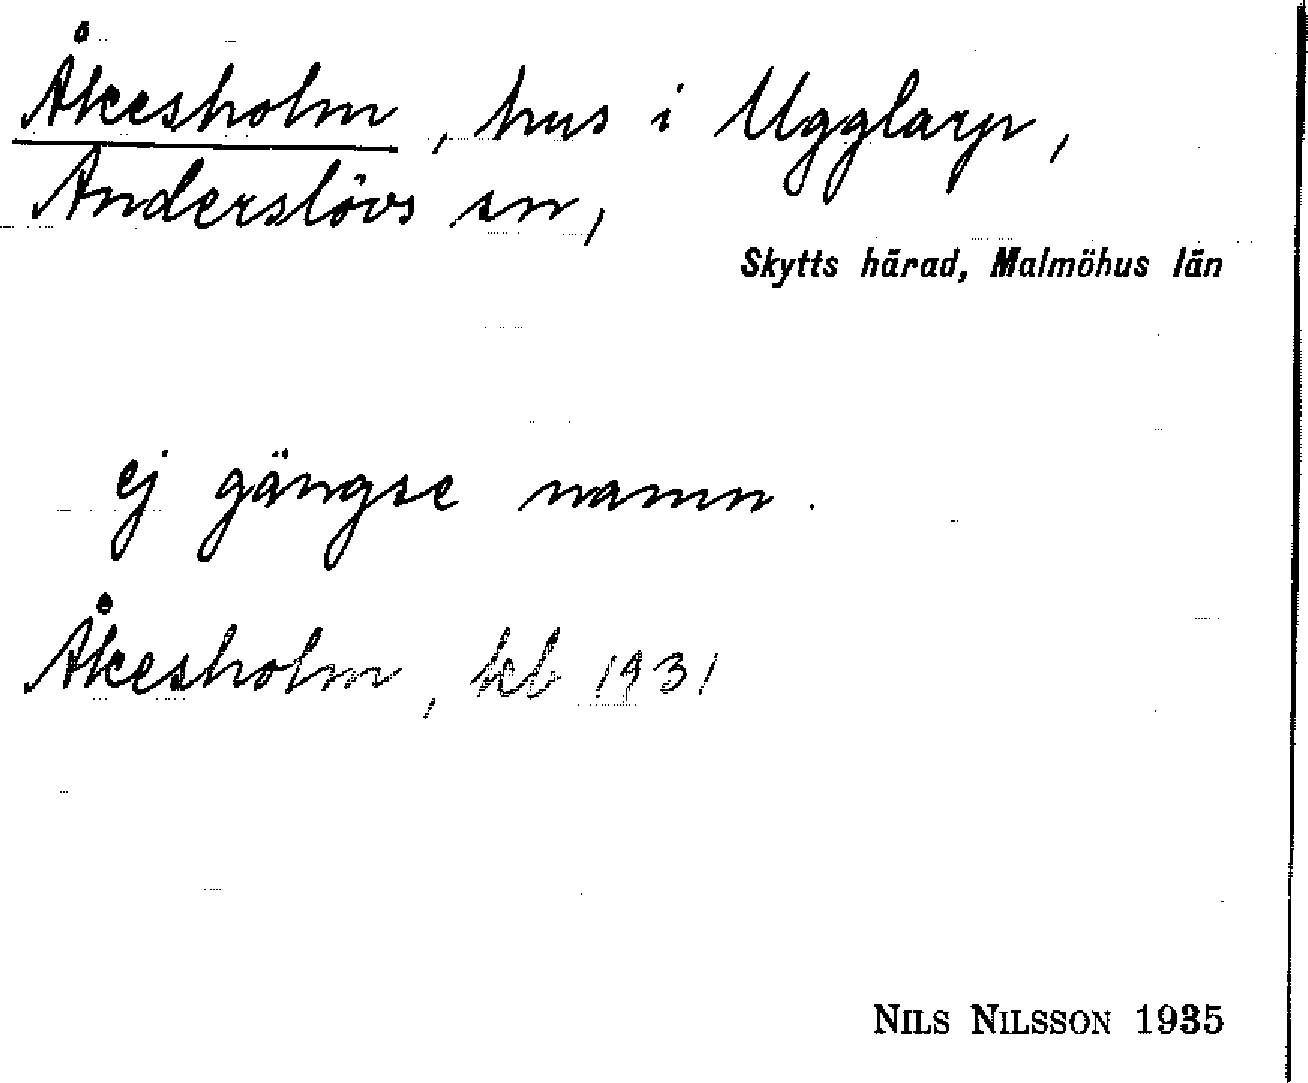 Åkesholm, hus i Ugglarp,
Anderslövs sn,
Skytts härad, Malmöhus län
ej gängse namn.
Åkesholm, kb 1931
NILS NILSSON 1935